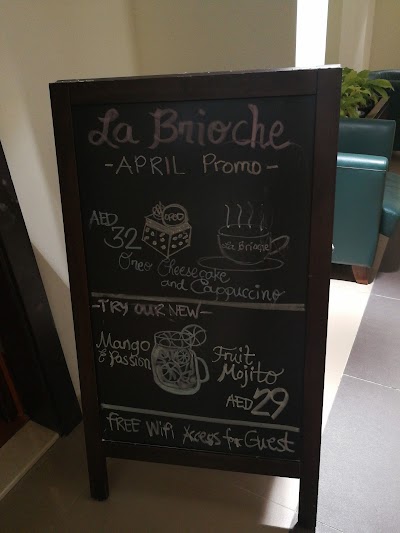 La Brioche
-APRIL Promo-
AED
32
OREO
La Brioche
Oreo Cheesecake
and Cappuccino
-TRY OUR NEW-
Mango
& Passion
Fruit
Mojito
AED 29
FREE Wifi Access for Guest